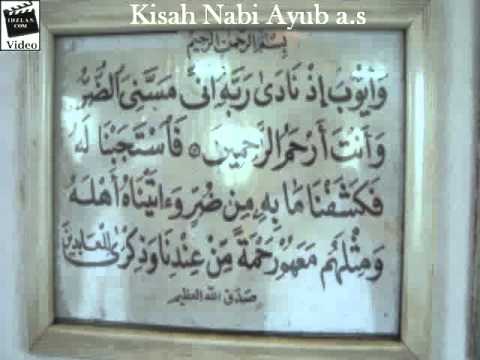 IDZLAN.
COM
Video
Kisah Nabi Ayub a.s
بسم الرحمن الرحيم
وَأَيُّوبَ إِذْ نَادَى رَبَّهُ أَنِّي مَسَّنِيَ الضُّرُّ
وَأَنتَ أَرْحَمُ الرَّاحِمِينَ ۞ فَاسْتَجَبْنَا لَهُ
فَكَشَفْنَا مَا بِهِ مِن ضُرٍّ وَءَاتَيْنَاهُ أَهْلَهُ
وَمِثْلَهُم مَّعَهُمْ رَحْمَةً مِّنْ عِندِنَا وَذِكْرَى لِلْعَابِدِينَ
صدق الله العظيم